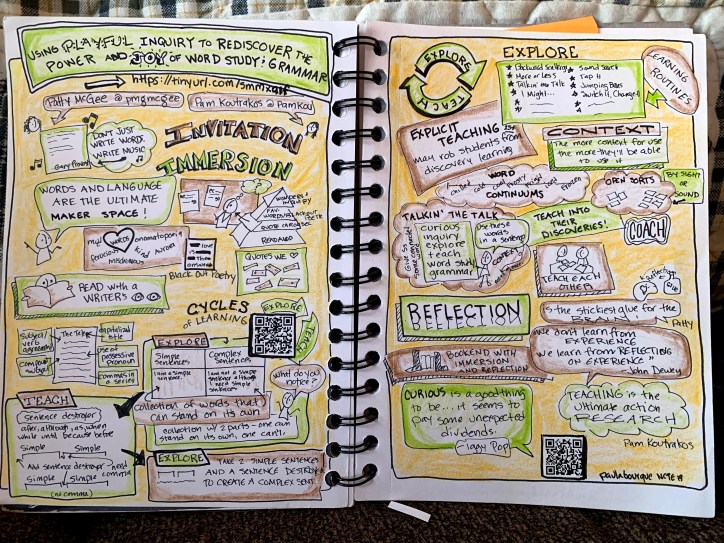 USING PLAYFUL INQUIRY TO REDISCOVER THE
POWER AND JOY OF WORD STUDY & GRAMMAR
https://tinyurl.com/
Patty McGee @pmgmcgee
Pam Koutrakos @PamKou
DON'T JUST
WRITE WORDS
WRITE MUSIC
Gary Provost
INVITATION
IMMERSION
WORDS AND LANGUAGE
ARE THE ULTIMATE
MAKER SPACE!
my WORDS
onomatopoeia
ferocious
Aurora
mischievous
Black Out Poetry
QUOTES WE ♡
READ WITH A
WRITER'S
CYCLES
OF LEARNING
EXPLORE
TEACH
Subject/
verb
agreement
compound
digitalized
title
use of
possessive
pronoun
commas in
a series
EXPLORE
Simple
Sentences
Complex
Sentences
I am a simple
sentence.
I am not a simple
sentence although
I need simple
sentences
What do you
notice?
collection of words that
can stand on its own
collection w/ 2 parts - one can
stand on its own, one can't.
TEACH
Sentence destroyer
after, although, as, when
while until because before
Simple Simple
Add sentence destroyer - need
comma
Simple Simple
(no comma)
EXPLORE
TAKE 2 SIMPLE SENTENCES
AND A SENTENCE DESTROYER
TO CREATE A COMPLEX SENT.
EXPLORE
TEACH
EXPLORE
More or Less
Talkin' the Talk
I Might...
Sound Search
Tap It
Jumping Beans
LEARNING
ROUTINES
EXPLICIT TEACHING
may rob students from
discovery learning
CONTEXT
The more context for use
the more they'll be able
to use it
WORD
CONTINUUMS
OPEN SORTS
BY SIGHT
OR
SOUND
TALKIN' THE TALK
curious
inquiry
explore
teach
word study
grammar
Use these
words in
a sentence
TEACH INTO
THEIR
DISCOVERIES!
COACH
TEACH EACH
OTHER
REFLECTION
is the stickiest glue for the
Patty
BOOKEND WITH
IMMERSION
AND REFLECTION
"We don't learn from
EXPERIENCE
We learn from REFLECTING
ON EXPERIENCE"
John Dewey
CURIOUS is a good thing
to be... it seems to
pay some unexpected
dividends.
- Iggy Pop
TEACHING is the
ultimate action
RESEARCH
Pam Koutrakos
paulabourque NCTE 19